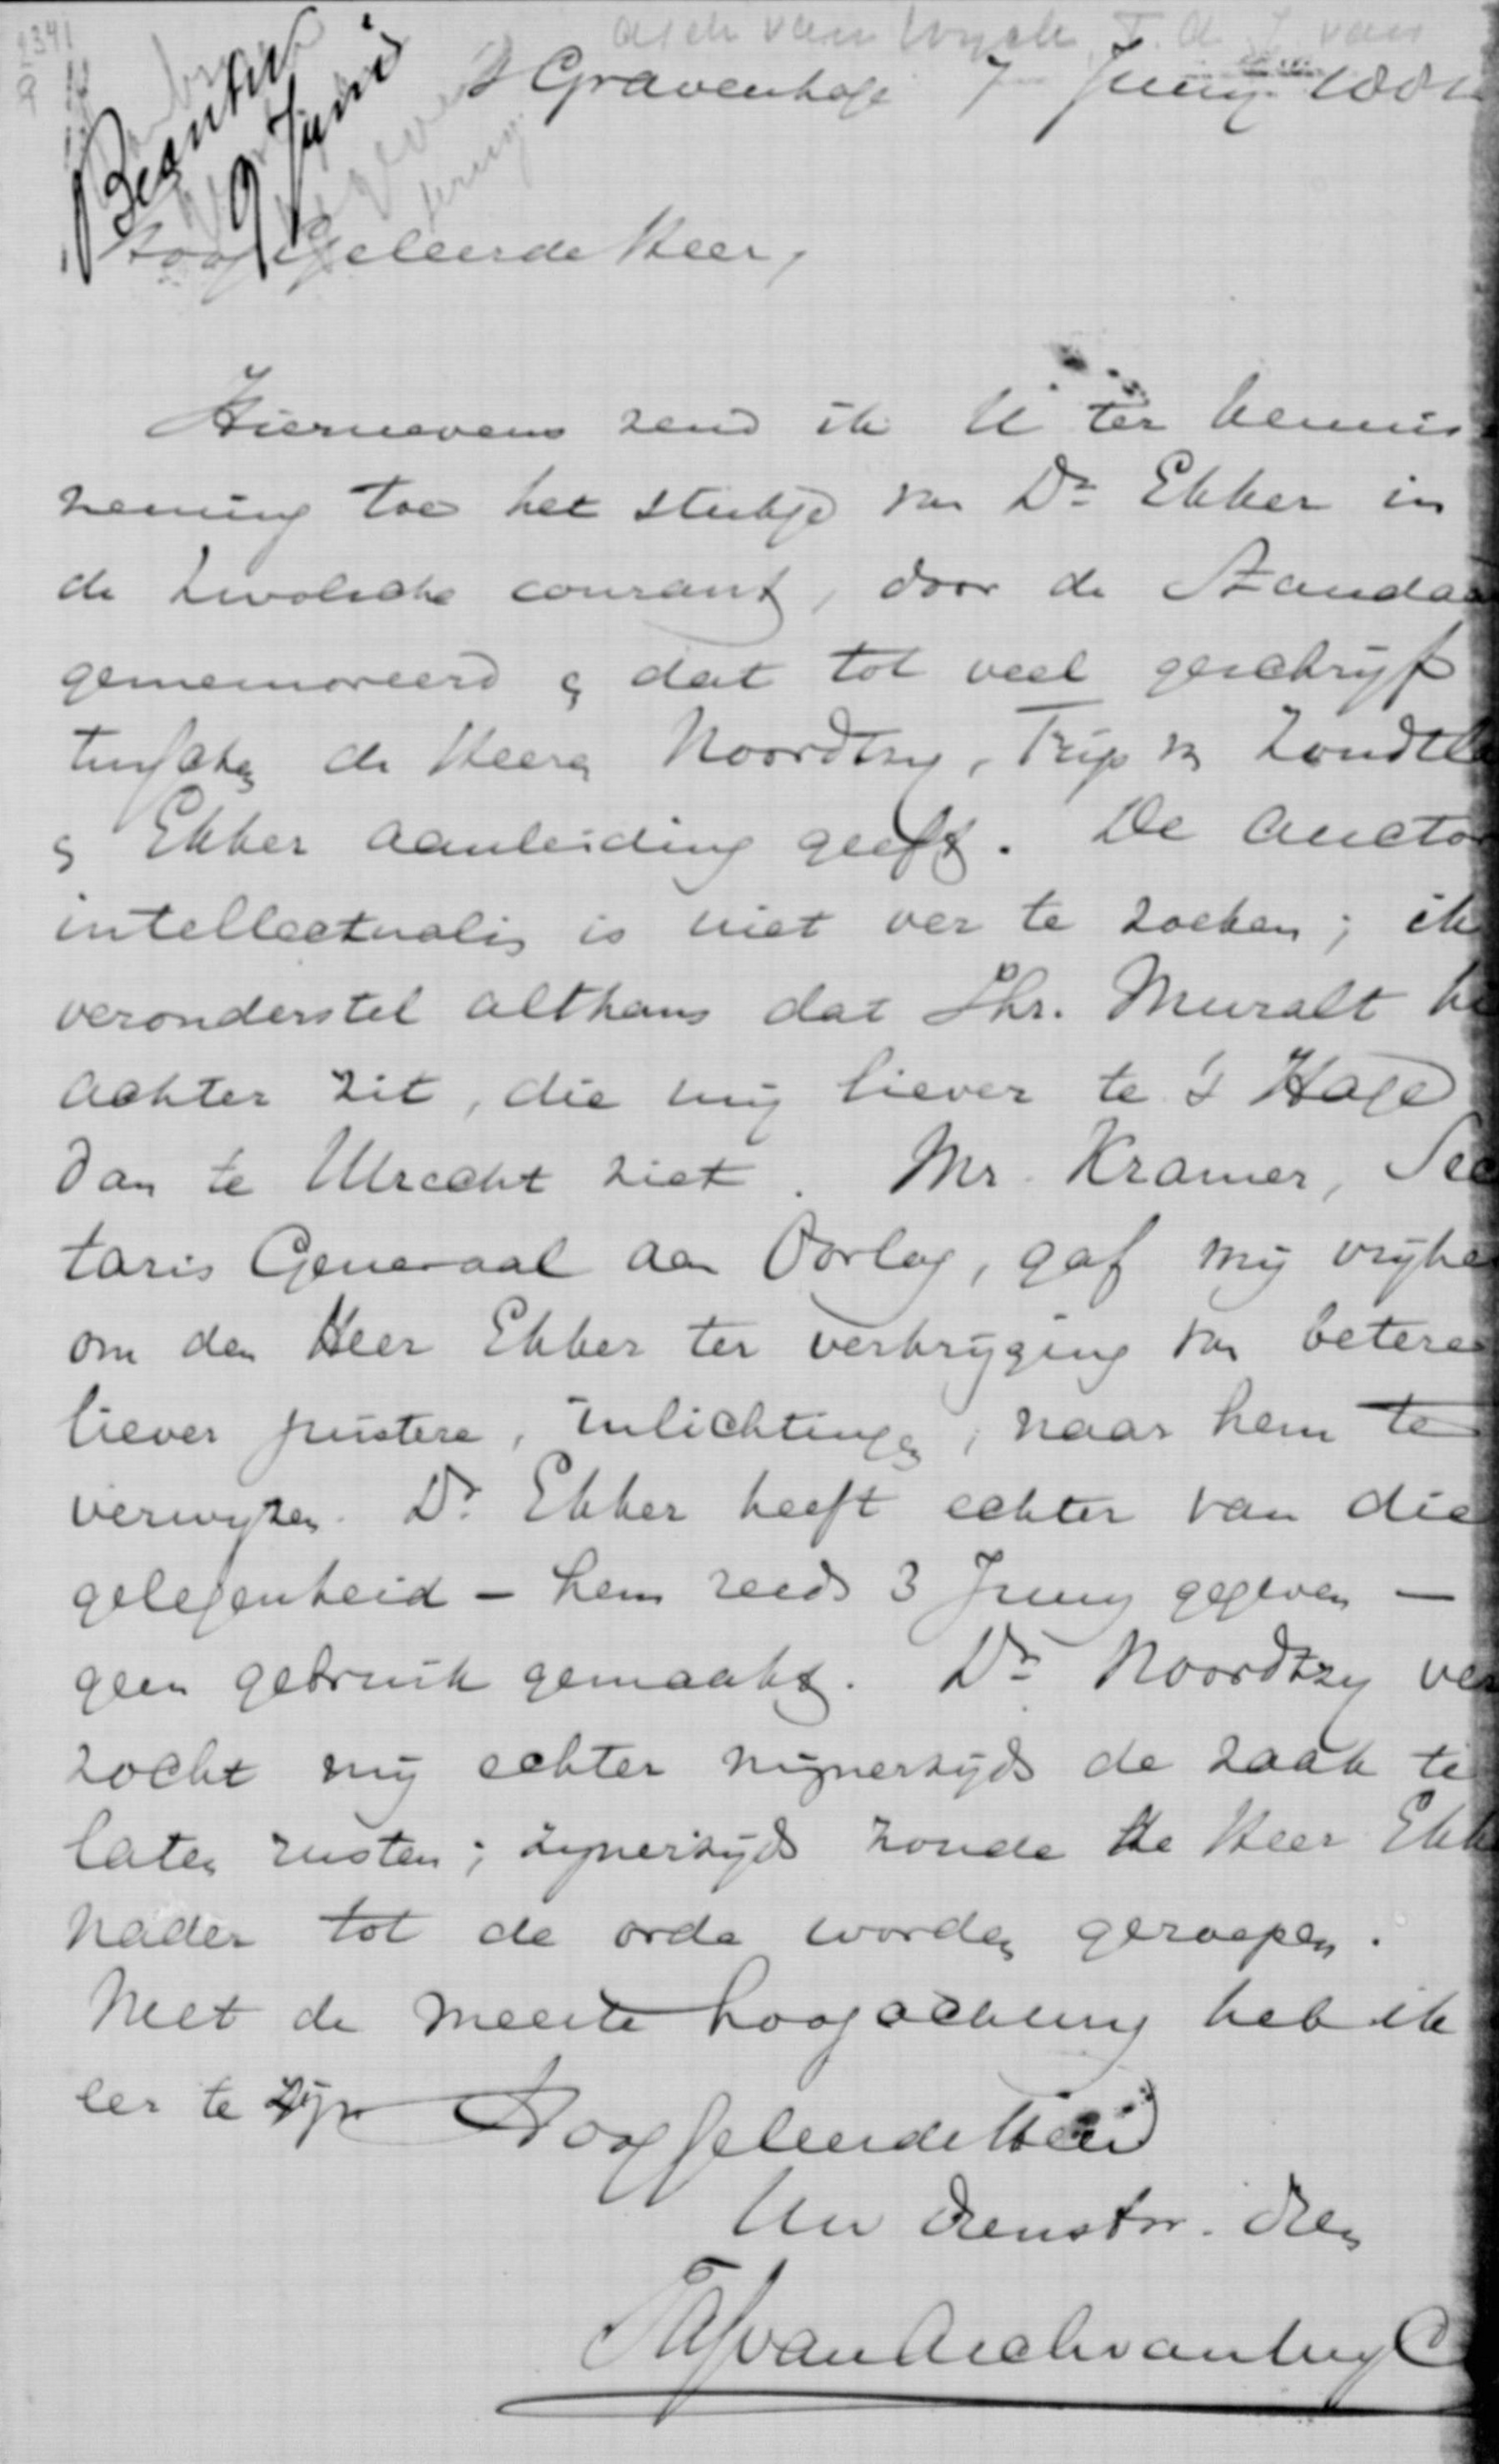 2341
9
asch van Wyck, T. A. J. van
Beantw
9 Juni
's Gravenhage 7 Juny
Hooggeleerde Heer,
Hiernevens zend ik U ter kennis
neming toe het stukje van Dr Ekker in
de Zwolsche courant, door de Standaa
gememoreerd & dat tot veel geschrijf
tusschen de Heeren Noordtzy, Trip van Zoudtla
& Ekker aanleiding geeft. De auctor
intellectualis is niet ver te zoeken; ik
veronderstel althans dat Jhr. Muralt hi
achter zit, die mij liever te 's Hage
dan te Utrecht ziet. Mr. Kramer, Sec
taris Generaal aan Oorlog, gaf mij vrijhe
om den Heer Ekker ter verkrijging van betere
liever juistere, inlichtingen, naar hem te
verwijzen. Dr. Ekker heeft echter van die
gelegenheid – hem reeds 3 Juny gegeven –
geen gebruik gemaakt. Dr Noordtzy ver
zocht mij echter mijnerzijds de zaak te
laten rusten; zijnerzijds zoude de Heer Ekk
nader tot de orde worden geroepen.
Met de meeste hoogachting heb ik
eer te zijn Hooggeleerde Heer
Uw dienstw. dien
TAJ van Asch van Wyc